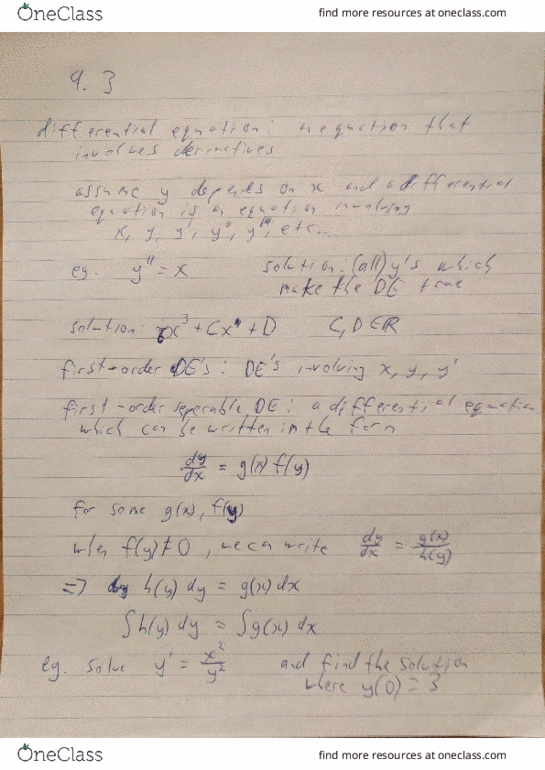 OneClass find more resources at oneclass.com
9.3
differential equation: an equation that
involves derivatives
assume y depends on x and a differential
equation is an equation involving
x, y, y', y'', y''', etc...
eg. y'' = x solution: (all) y's which
make the DE true
solution: x³ + Cx + D C, D ∈ ℝ
first-order DE's: DE's involving x, y, y'
first-order seperable DE: a differential equation
which can be written in the form
dy/dx = g(x) f(y)
for some g(x), f(y)
when f(y) ≠ 0, we can write dy/dx = g(x)/h(y)
=> h(y) dy = g(x) dx
∫h(y) dy = ∫g(x) dx
eg. solve y' = x²/y² and find the solution
where y(0) = 3
OneClass find more resources at oneclass.com